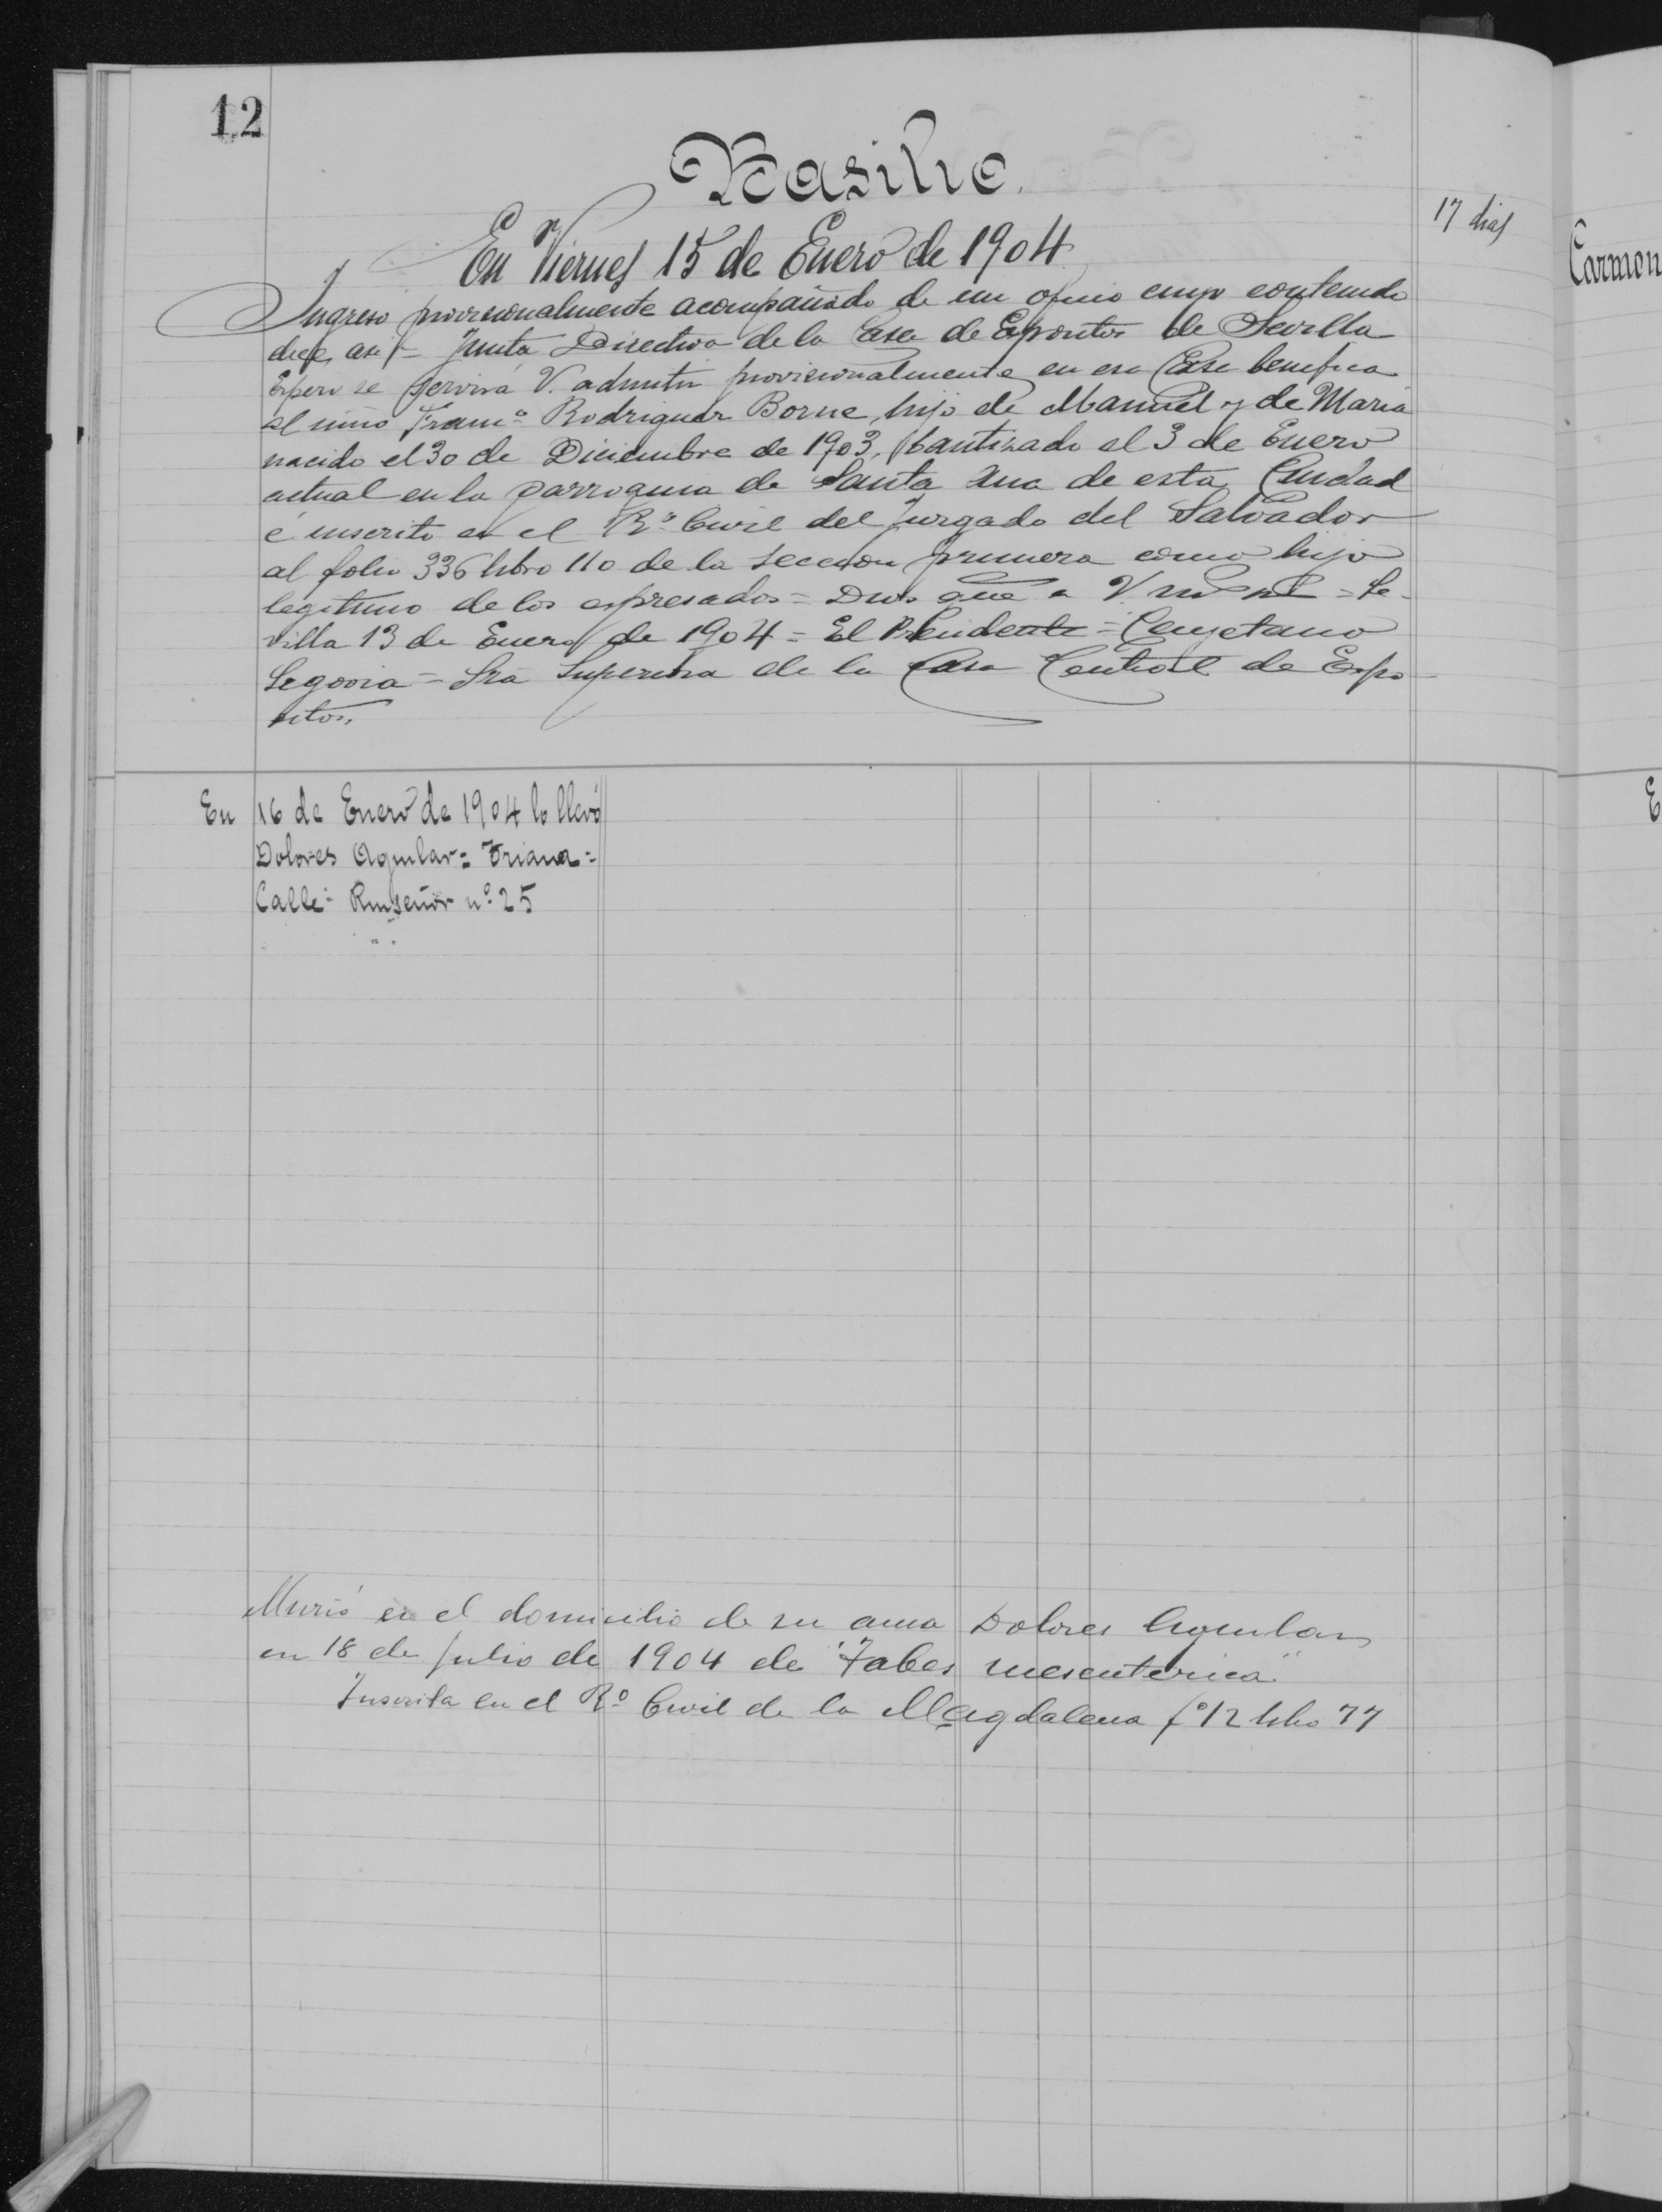 12
Basilio.
17 dias
En Viernes 15 de Enero de 1904
Ingresó provisionalmente acompañado de un oficio cuyo contenido
dice asi = Junta Directiva de la Casa de Expositos de Sevilla
Espero se servirá V. admitir provisionalmente en esa Casa benefica
al niño Franco Rodriguez Borne, hijo de Manuel y de Maria
nacido el 30 de Diciembre de 1903, bautizado el 3 de Enero
actual en la parroquia de Santa Ana de esta Ciudad
é inscrito en el Ro Civil del Juzgado del Salvador
al folio 336 libro 110 de la seccion primera como hijo
legitimo de los espresados = Dios gue a V = Se-
villa 13 de Enero de 1904 = El Presidente = Cayetano
Segovia = Sra Superiora de la Casa Central de Expo-
sitos.
En 16 de Enero de 1904 lo llevó
Dolores Aguilar = Triana =
Calle = Ruiseñor no 25
Murió en el domicilio de su ama Dolores Aguilar
en 18 de Julio de 1904 de "Tabes mesenterica"
Inscrita en el Ro Civil de la Magdalena fo 12 libo 77
Carmen
E